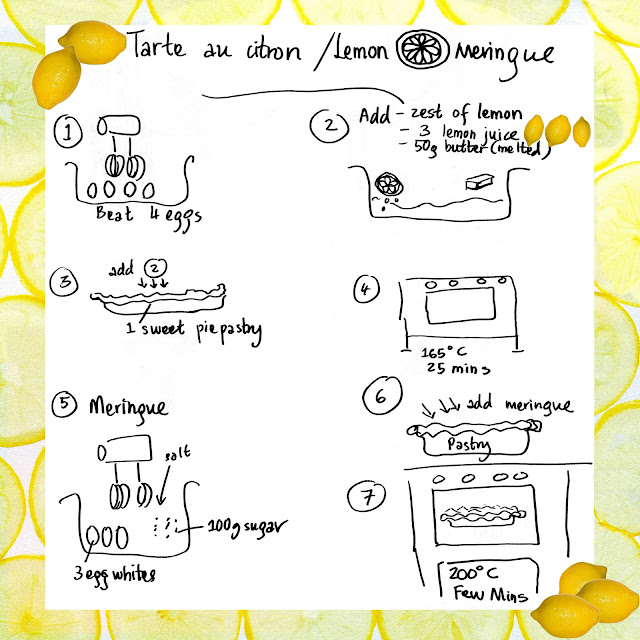 Tarte au citron / Lemon Meringue
1
Beat 4 eggs
2
Add - zest of lemon
- 3 lemon juice
- 50g butter (melted)
3
add 2
1 sweet pie pastry
4
165°C
25 mins
5 Meringue
salt
100g sugar
3 egg whites
6
add meringue
Pastry
7
200°C
Few Mins